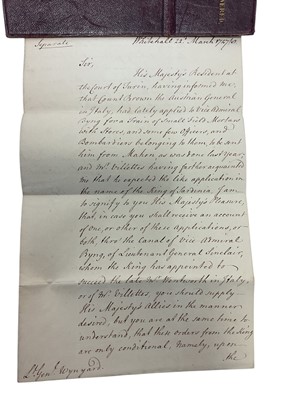 Separate
Whitehall 22d March 1747/8.
Sir,
His Majesty's Resident at
the Court of Turin, having informed me,
that Count Brown the Austrian General
in Italy, has lately applied to Vice Admiral
Byng for a Train of Small Field Mortars
with Stores, and some few Officers, and
Bombardiers belonging to them, to be sent
him from Mahon, as was done last Year,
and Mr. Villettes having further acquainted
me that he expected the like application in
the name of the King of Sardinia, I am
to signify to you His Majesty's Pleasure,
that, in case you shall receive an account
of one, or other of these Applications, or
both, thro' the Canal of Vice Admiral
Byng, of Lieutenant General Sinclair,
whom the King has appointed to
succeed the late Mr. Wentworth in Italy,
or of Mr. Villettes, you should supply
His Majesty's Allies in the manner
desired, but you are at the same time to
understand, that these orders from the King
are only conditional, Namely, upon
the
Lt. Genl. Wynyard.